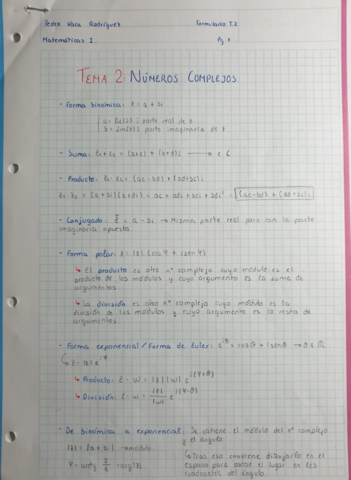 Pedro Vaca Rodríguez Formulario T.2
Matemáticas I Pg 1
TEMA 2: NÚMEROS COMPLEJOS.
- Forma binómica: z = a + bi
a = Re(z) : parte real de z
b = Im(z) : parte imaginaria de z
- Suma: z₁ + z₂ = (a+c) + (b+d)i → ∈ ℂ
- Producto: z₁ · z₂ = (ac - bd) + (ad + bc)i
z₁ · z₂ = (a + bi)(c + di) = ac + adi + bci + bdi² = (ac - bd) + (ad + bc)i
- Conjugado: z̄ = a - bi → Misma parte real pero con la parte
imaginaria opuesta.
- Forma polar: z = |z| (cos φ + i sen φ)
↳ El producto es otro nº complejo cuyo módulo es el
producto de los módulos y cuyo argumento es la suma de
argumentos
↳ La división es otro nº complejo cuyo módulo es la
división de los módulos y cuyo argumento es la resta de
argumentos.
- Forma exponencial / Forma de Euler: e^{iθ} = cos θ + i sen θ → θ ∈ ℝ
↳ z = |z| e^{iφ}
↳ Producto: z · w = |z| |w| e^{i(φ+θ)}
↳ División: z ÷ w = |z|/|w| e^{i(φ-θ)}
- De binómica a exponencial: Se obtiene el módulo del nº complejo
y el ángulo
|z| = |a + bi| → módulo.
↳ Tras eso conviene dibujarlo en el
φ = arctg b/a = arg(z)
espacio para sacar el lugar en los
cuadrantes del ángulo